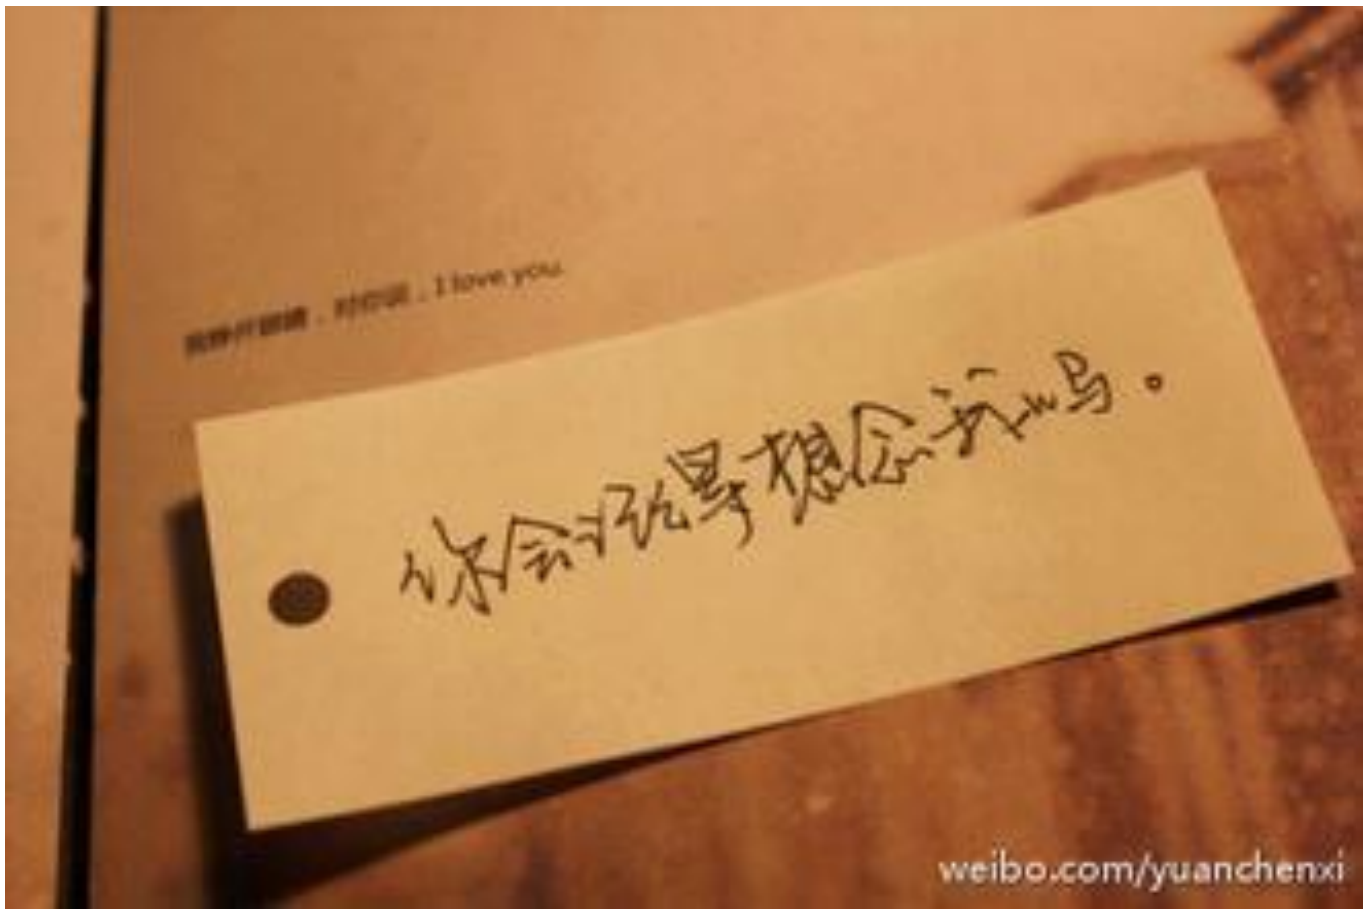 我睁开眼睛，对你说，I love you.
你会经常想念我吗。
weibo.com/yuanchenxi